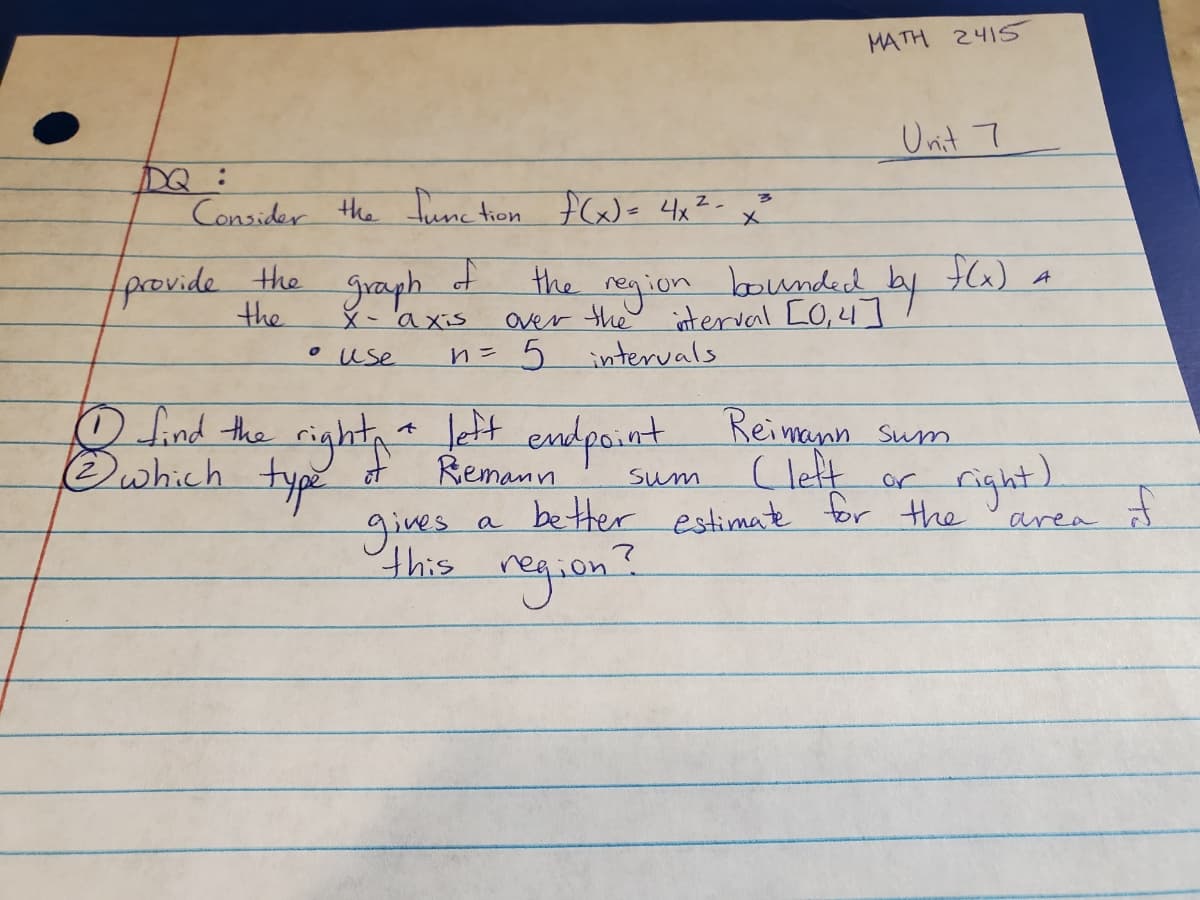 MATH 2415
Unit 7
DQ :
Consider the function f(x) = 4x² - x³
provide the graph of the region bounded by f(x) &
the x-axis over the interval [0,4]
• use n = 5 intervals
① find the right & left endpoint Reimann sum
② which type of Riemann sum (left or right)
gives a better estimate for the area of
this region?